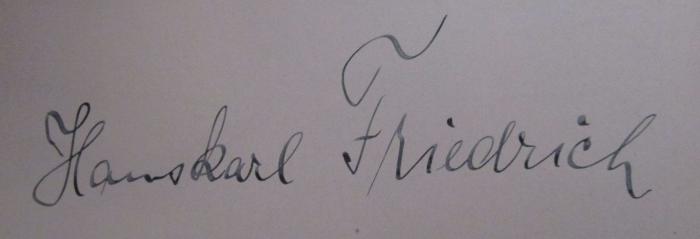 Hanskarl Friedrich